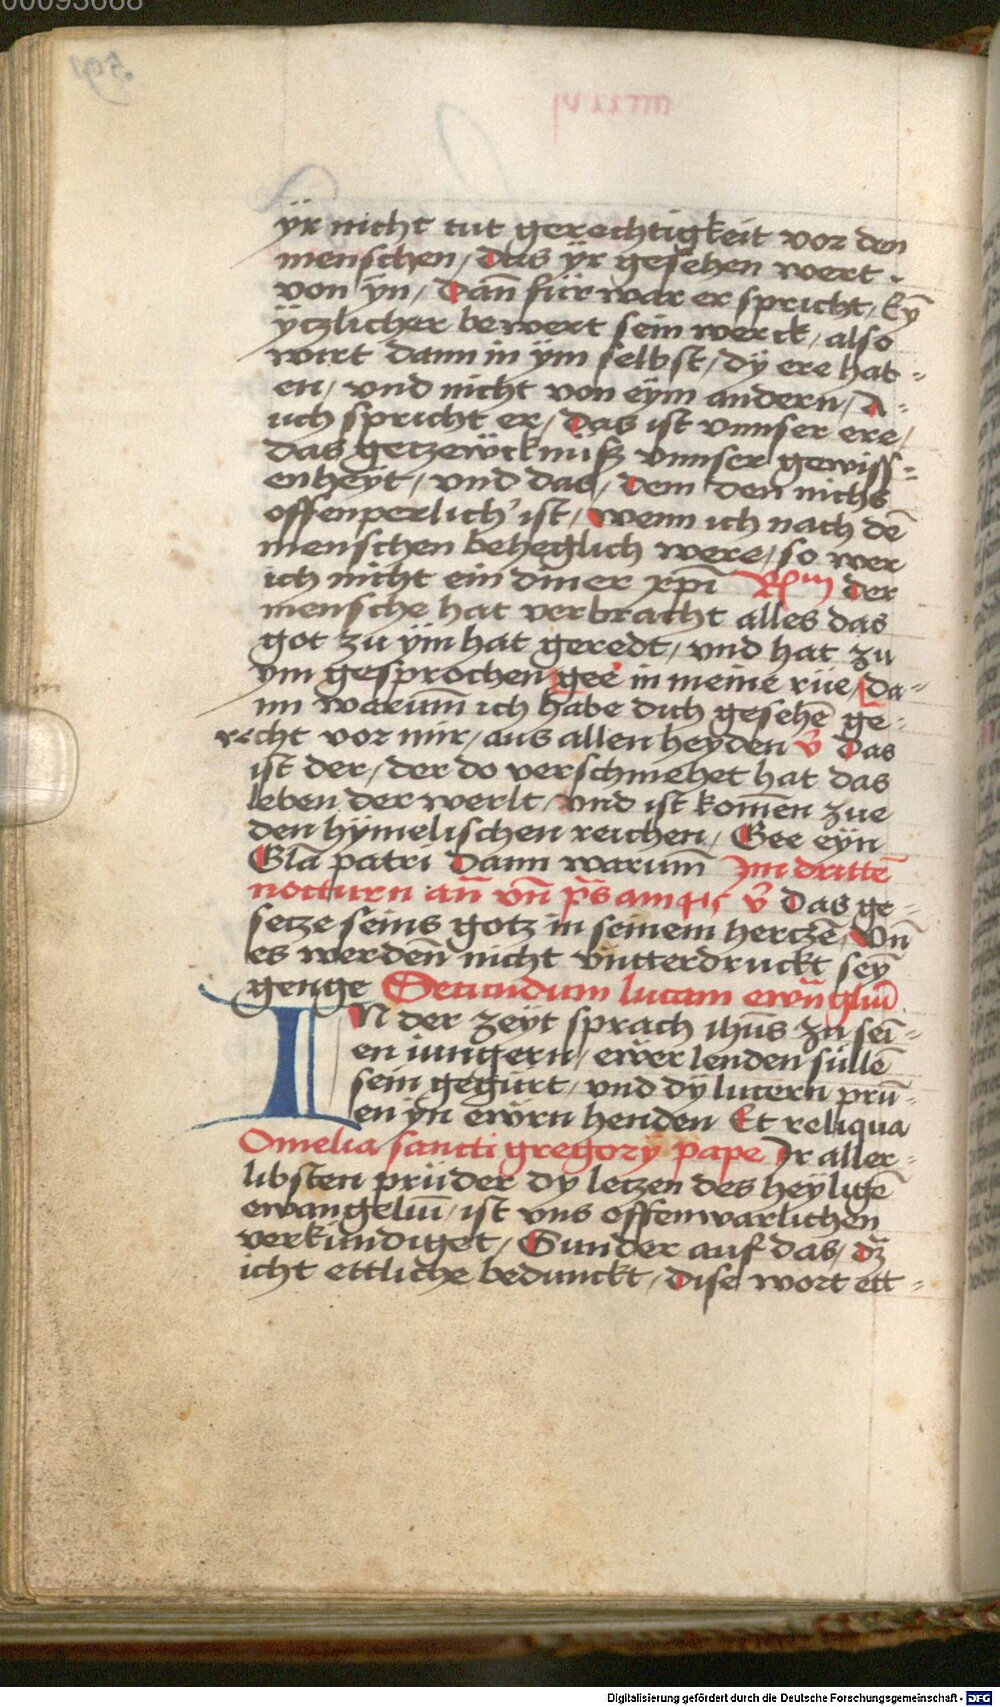 00093668
ÿr nicht tut gerechtigkeit vor den
menschen / das ÿr gesehen wert
von ÿn / dan̄ für war er spricht / Eÿ̄
ÿczlicher bewert sein werck / also
wirt dann in ÿm selbst / dÿ ere hat=
en / vnd nicht von eÿm andern / A=
uch spricht er / das ist vnnser ere /
das getzewcknüß vnnser gewiss=
enheÿt / vnd das / dem den nichs
offenperlich ist / wenn ich nach dē
menschen beheglich were / so wer
ich nicht ein diner xp̄i Rm̄ der
mensche hat verbracht alles das
got zu ÿm hat geredt / vnd hat zu
ym gesprochen gee in meine rüe / da=
nn warum̄ ich habe dich gesehē ge=
recht vor mir / aus allen heyden v̄ das
ist der / der do verschmehet hat das
leben der werlt / vnd ist kom̄en zue
den hÿmelischen reichen / Gee eÿn
Gl̄a patri dann warum̄ Im dritten̄
notturn an̄ vn̄ p̄s am v̄ das ge=
setze seins gotz in seinem hertzē / Vn̄
es werden̄ nicht vntterdruckt seÿ̄
genge Secundum lucam ewāgliū
IN der zeÿt sprach ihūs zu sei=
en iungern / ewer lenden süllē
sein gegürt / vnd dÿ lucern prū=
en ÿn ewrn henden Et reliqua
Omelia sancti gregorÿ pape Ir aller=
libsten prüder dy letzen des heÿligē
ewangeliū / ist vns offenwarlichen
verkündiget / Sunder auf das / dz
icht ettliche bedunckt / dise wort ett=
Digitalisierung gefördert durch die Deutsche Forschungsgemeinschaft - DFG